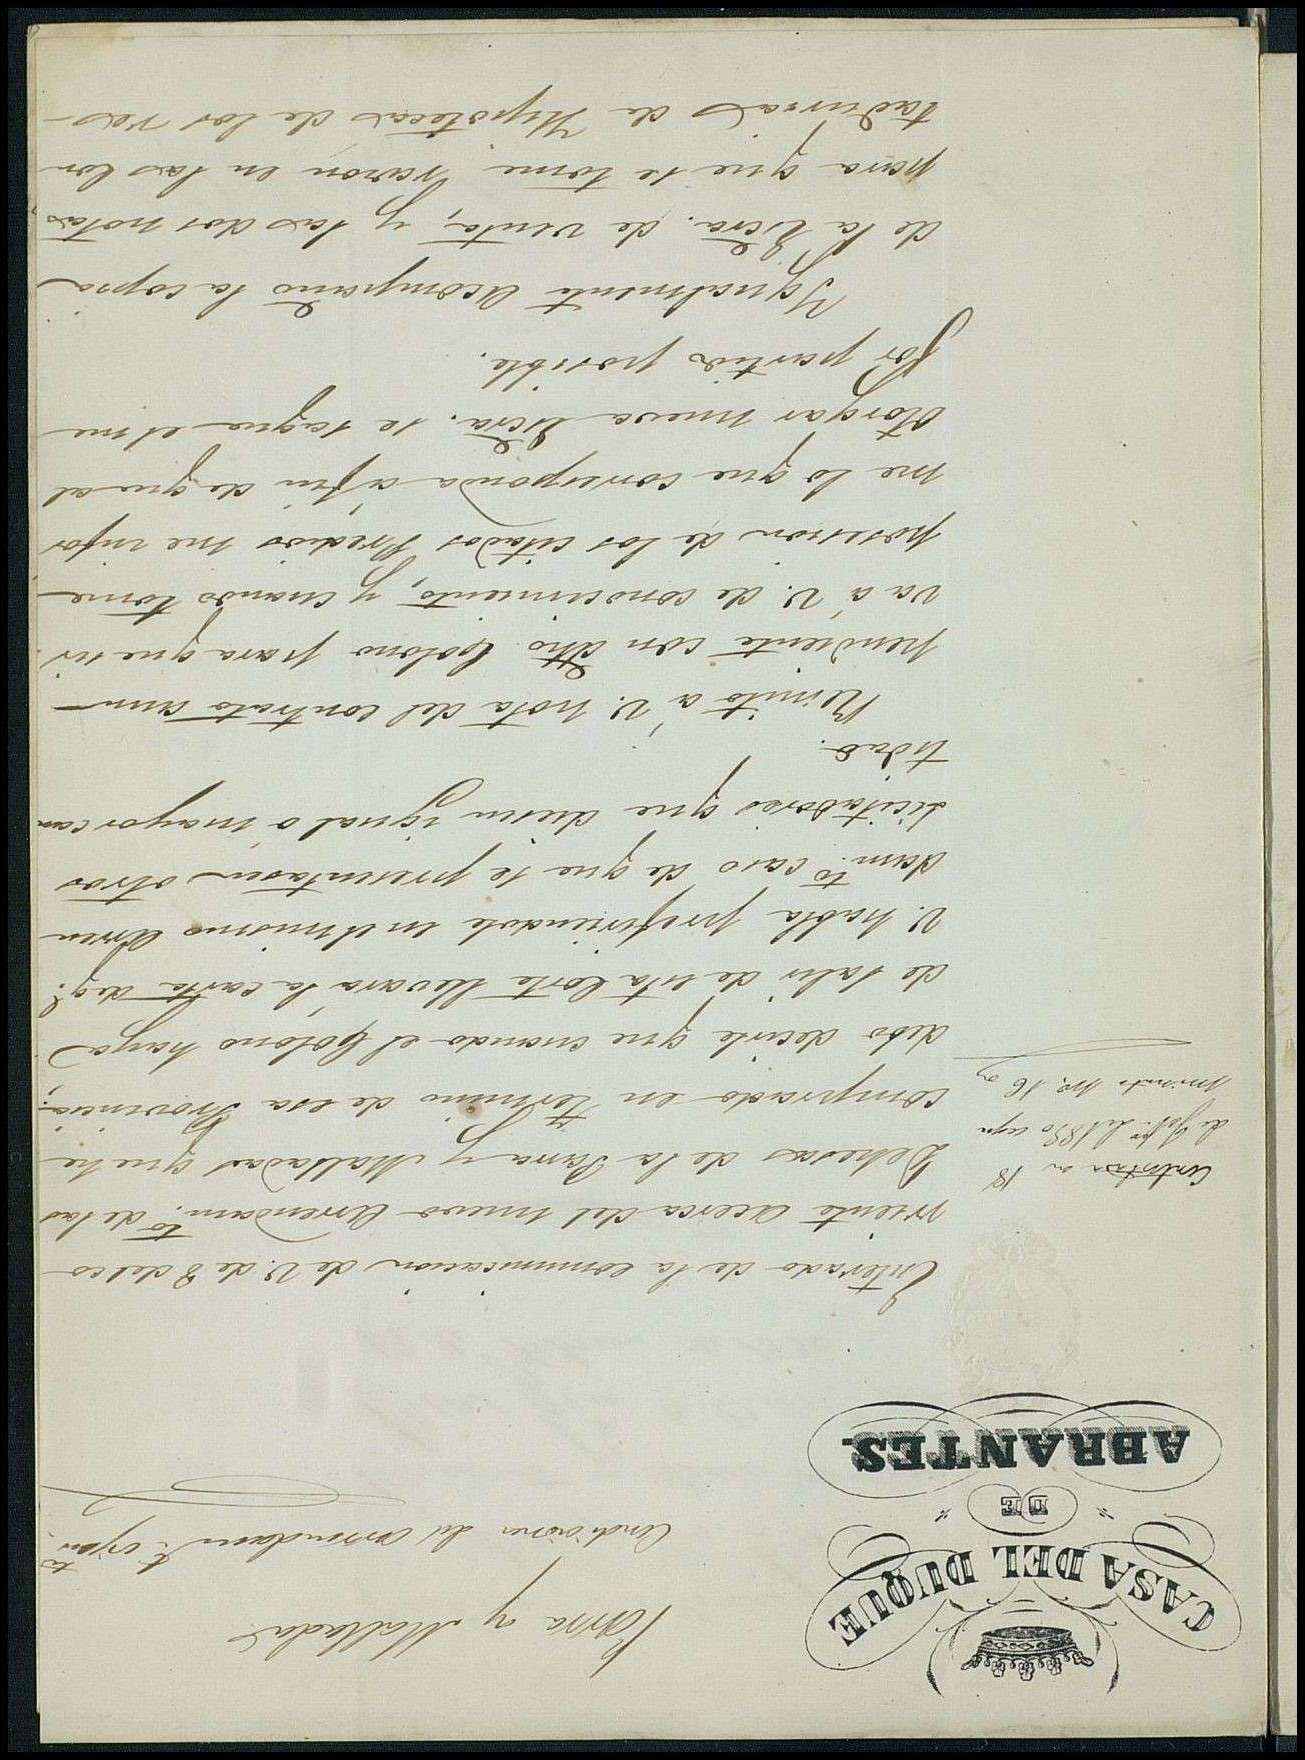 CASA DEL DUQUE
DE
ABRANTES.
Parra y Malladas
Condiciones del arrendam.to
Contestada en 18
de del 1850
Enterado de la comunicacion de V. de 8 del co
rriente acerca del nuevo arrendam.to de las
Dehesas de la Parra y Malladas que he
comprado en termino de esa Provincia,
debo decirle que cuando el Colono haya
de salir de esta Corte llevará la carta de q.e
V. habla prefiriendole en el mismo arren
dam.to caso de que se presentasen otros
licitadores que diesen igual o mayor can
tidad.
Remito á V. nota del contrato aun
pendiente con dho. Colono para que sir
va á V. de conocimiento, y cuando tome
posesion de los citados Predios me infor
me lo que corresponda a fin de que al
otorgar nueva Escra. se saque el me
jor partido posible.
Igualmente acompaño la copia
de la Escra. de venta, y las dos notas
para que se tome razon en las Con
tadurias de Hypotecas de los res-